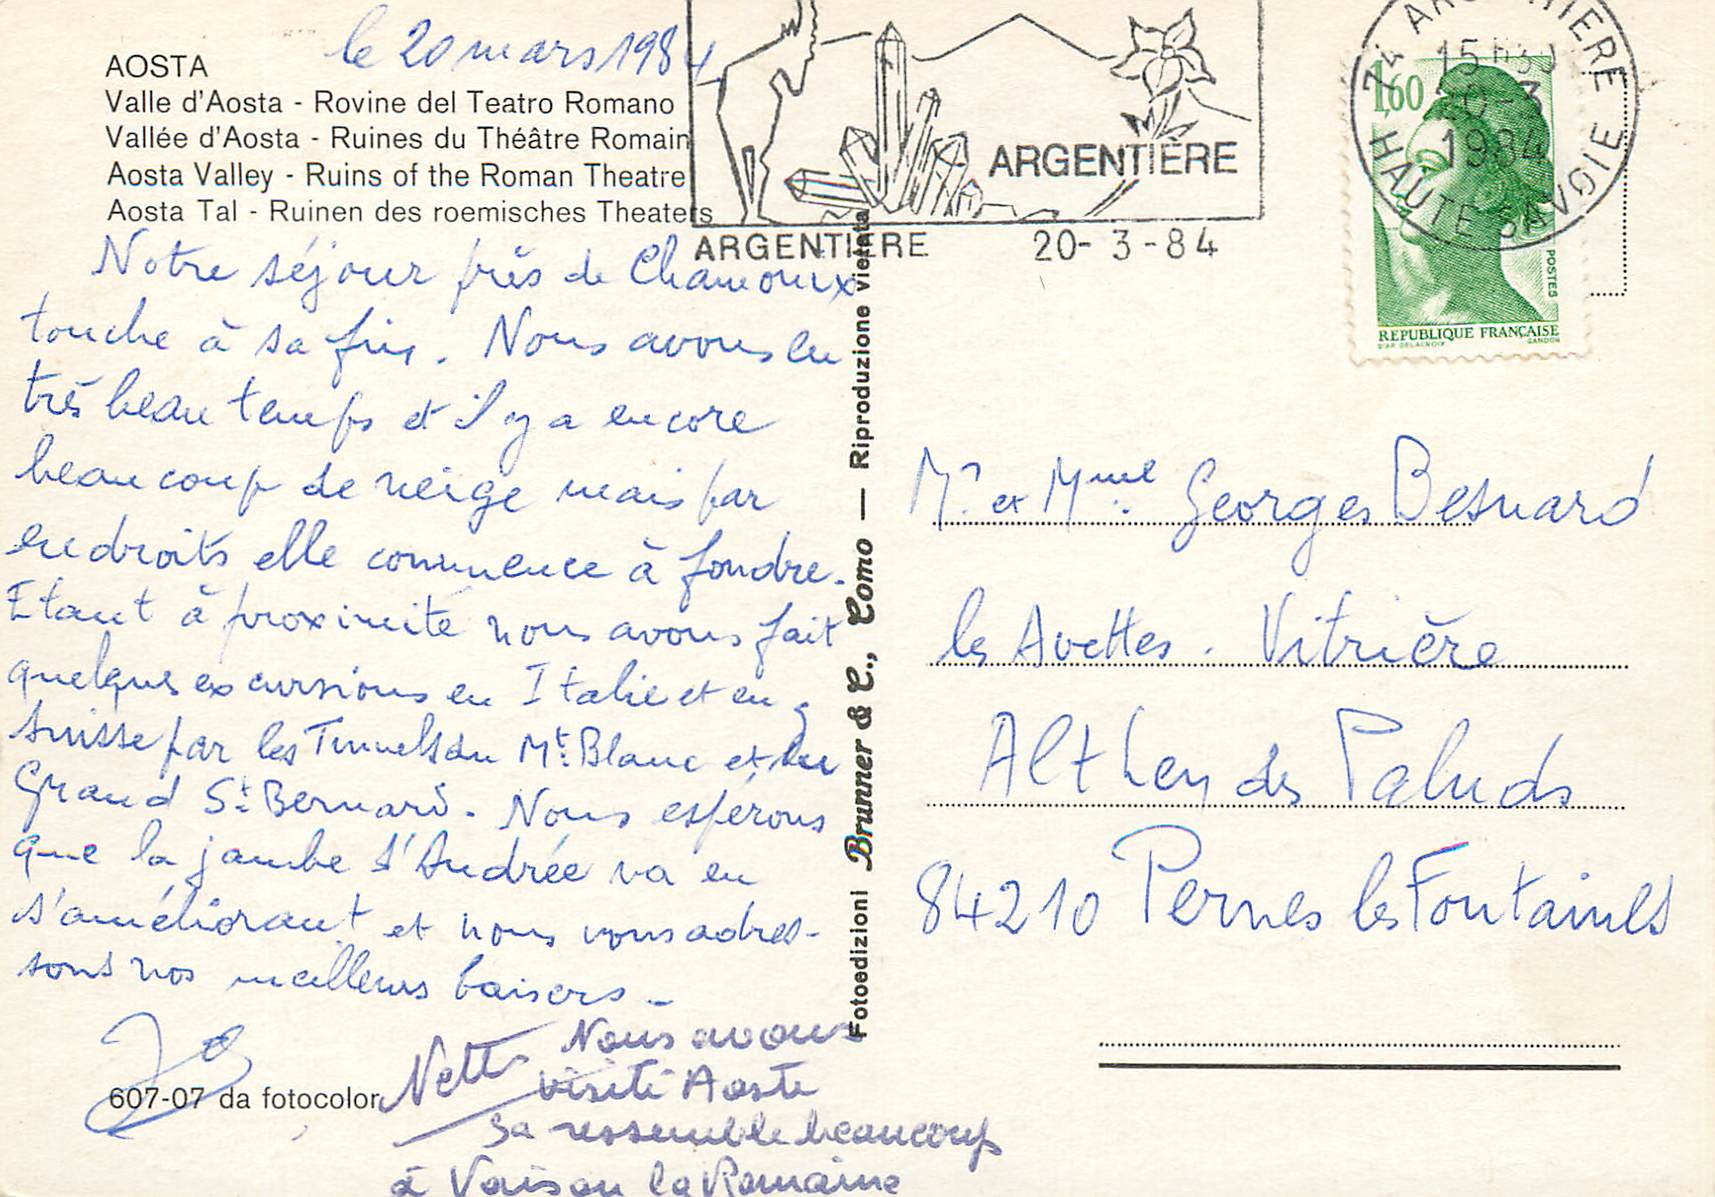 le 20 mars 1984
AOSTA
Valle d'Aosta - Rovine del Teatro Romano
Vallée d'Aosta - Ruines du Théâtre Romain
Aosta Valley - Ruins of the Roman Theatre
Aosta Tal - Ruinen des roemisches Theaters
Notre séjour près de Chamonix
touche à sa fin. Nous avons eu
très beau temps et il y a encore
beaucoup de neige mais par
endroits elle commence à fondre.
Etant à proximité nous avons fait
quelques excursions en Italie et en
Suisse par les Tunnels du Mt. Blanc et du
Grand St. Bernard. Nous espérons
que la jambe d'Andrée va en
s'améliorant et nous vous adres-
sons nos meilleurs baisers -
Nous avons
visité Aoste
sa ressemble beaucoup
à Vaison la Romaine
607-07 da fotocolor
Fotoedizioni Brunner & C., Como — Riproduzione vietata
ARGENTIÈRE
ARGENTIERE 20-3-84
74 ARGENTIERE
15H30
20-3
1984
HAUTE SAVOIE
1,60
POSTES
REPUBLIQUE FRANÇAISE
D'AP. DELACROIX GANDON
Mr. et Mme. Georges Besnard
les Avettes. Vitrière
Althen des Paluds
84210 Pernes les Fontaines